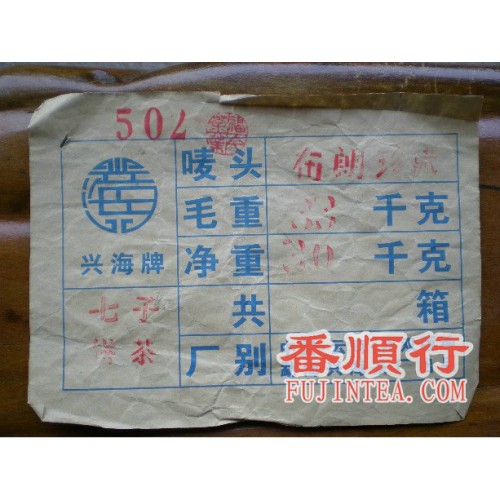 502
唛头 布朗
毛重 33 千克
兴海牌 净重 30 千克
七子 共 箱
饼茶 厂别
番順行
FUJINTEA.COM